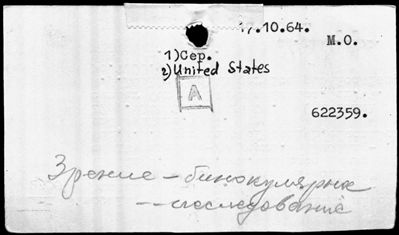 .10.64.
М.О.
1) Сер.
2) United States
А
622359.
Зрение – бинокулярное
– исследование